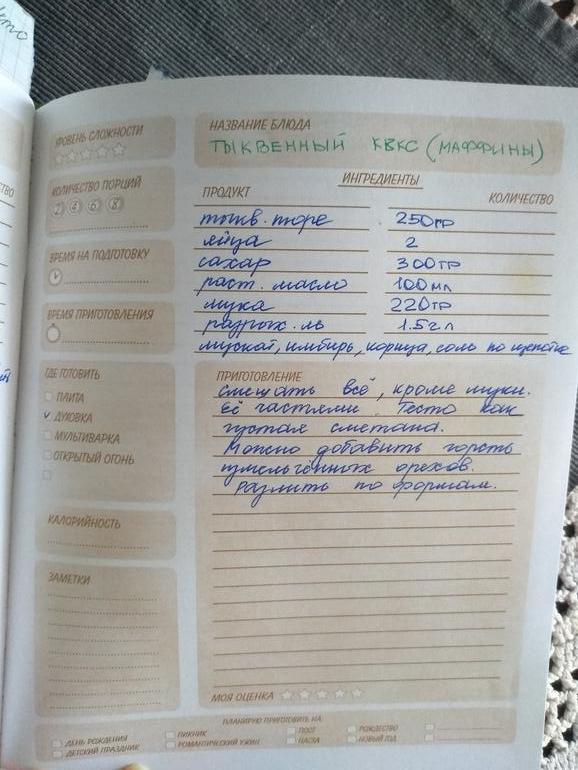 УРОВЕНЬ СЛОЖНОСТИ
НАЗВАНИЕ БЛЮДА
ТЫКВЕННЫЙ КВКС (МАФФИНЫ)
КОЛИЧЕСТВО ПОРЦИЙ
2 4 6 8
ИНГРЕДИЕНТЫ
ПРОДУКТ КОЛИЧЕСТВО
тыкв. пюре 250гр
яйца 2
сахар 300гр
раст. масло 100мл
мука 220гр
разрых.ль 1.5г л
мускат, имбирь, корица, соль по щепотке
ВРЕМЯ НА ПОДГОТОВКУ
ВРЕМЯ ПРИГОТОВЛЕНИЯ
ГДЕ ГОТОВИТЬ
ПЛИТА
ДУХОВКА
МУЛЬТИВАРКА
ОТКРЫТЫЙ ОГОНЬ
КАЛОРИЙНОСТЬ
ЗАМЕТКИ
ПРИГОТОВЛЕНИЕ
смешать всё, кроме муки.
Её частями. Тесто как
густая сметана.
Можно добавить горсть
измельчённых орехов.
Разлить по формам.
МОЯ ОЦЕНКА
ПЛАНИРУЮ ПРИГОТОВИТЬ НА
ДЕНЬ РОЖДЕНИЯ ПИКНИК ПОСТ РОЖДЕСТВО
ДЕТСКИЙ ПРАЗДНИК РОМАНТИЧЕСКИЙ УЖИН ПАСХА НОВЫЙ ГОД